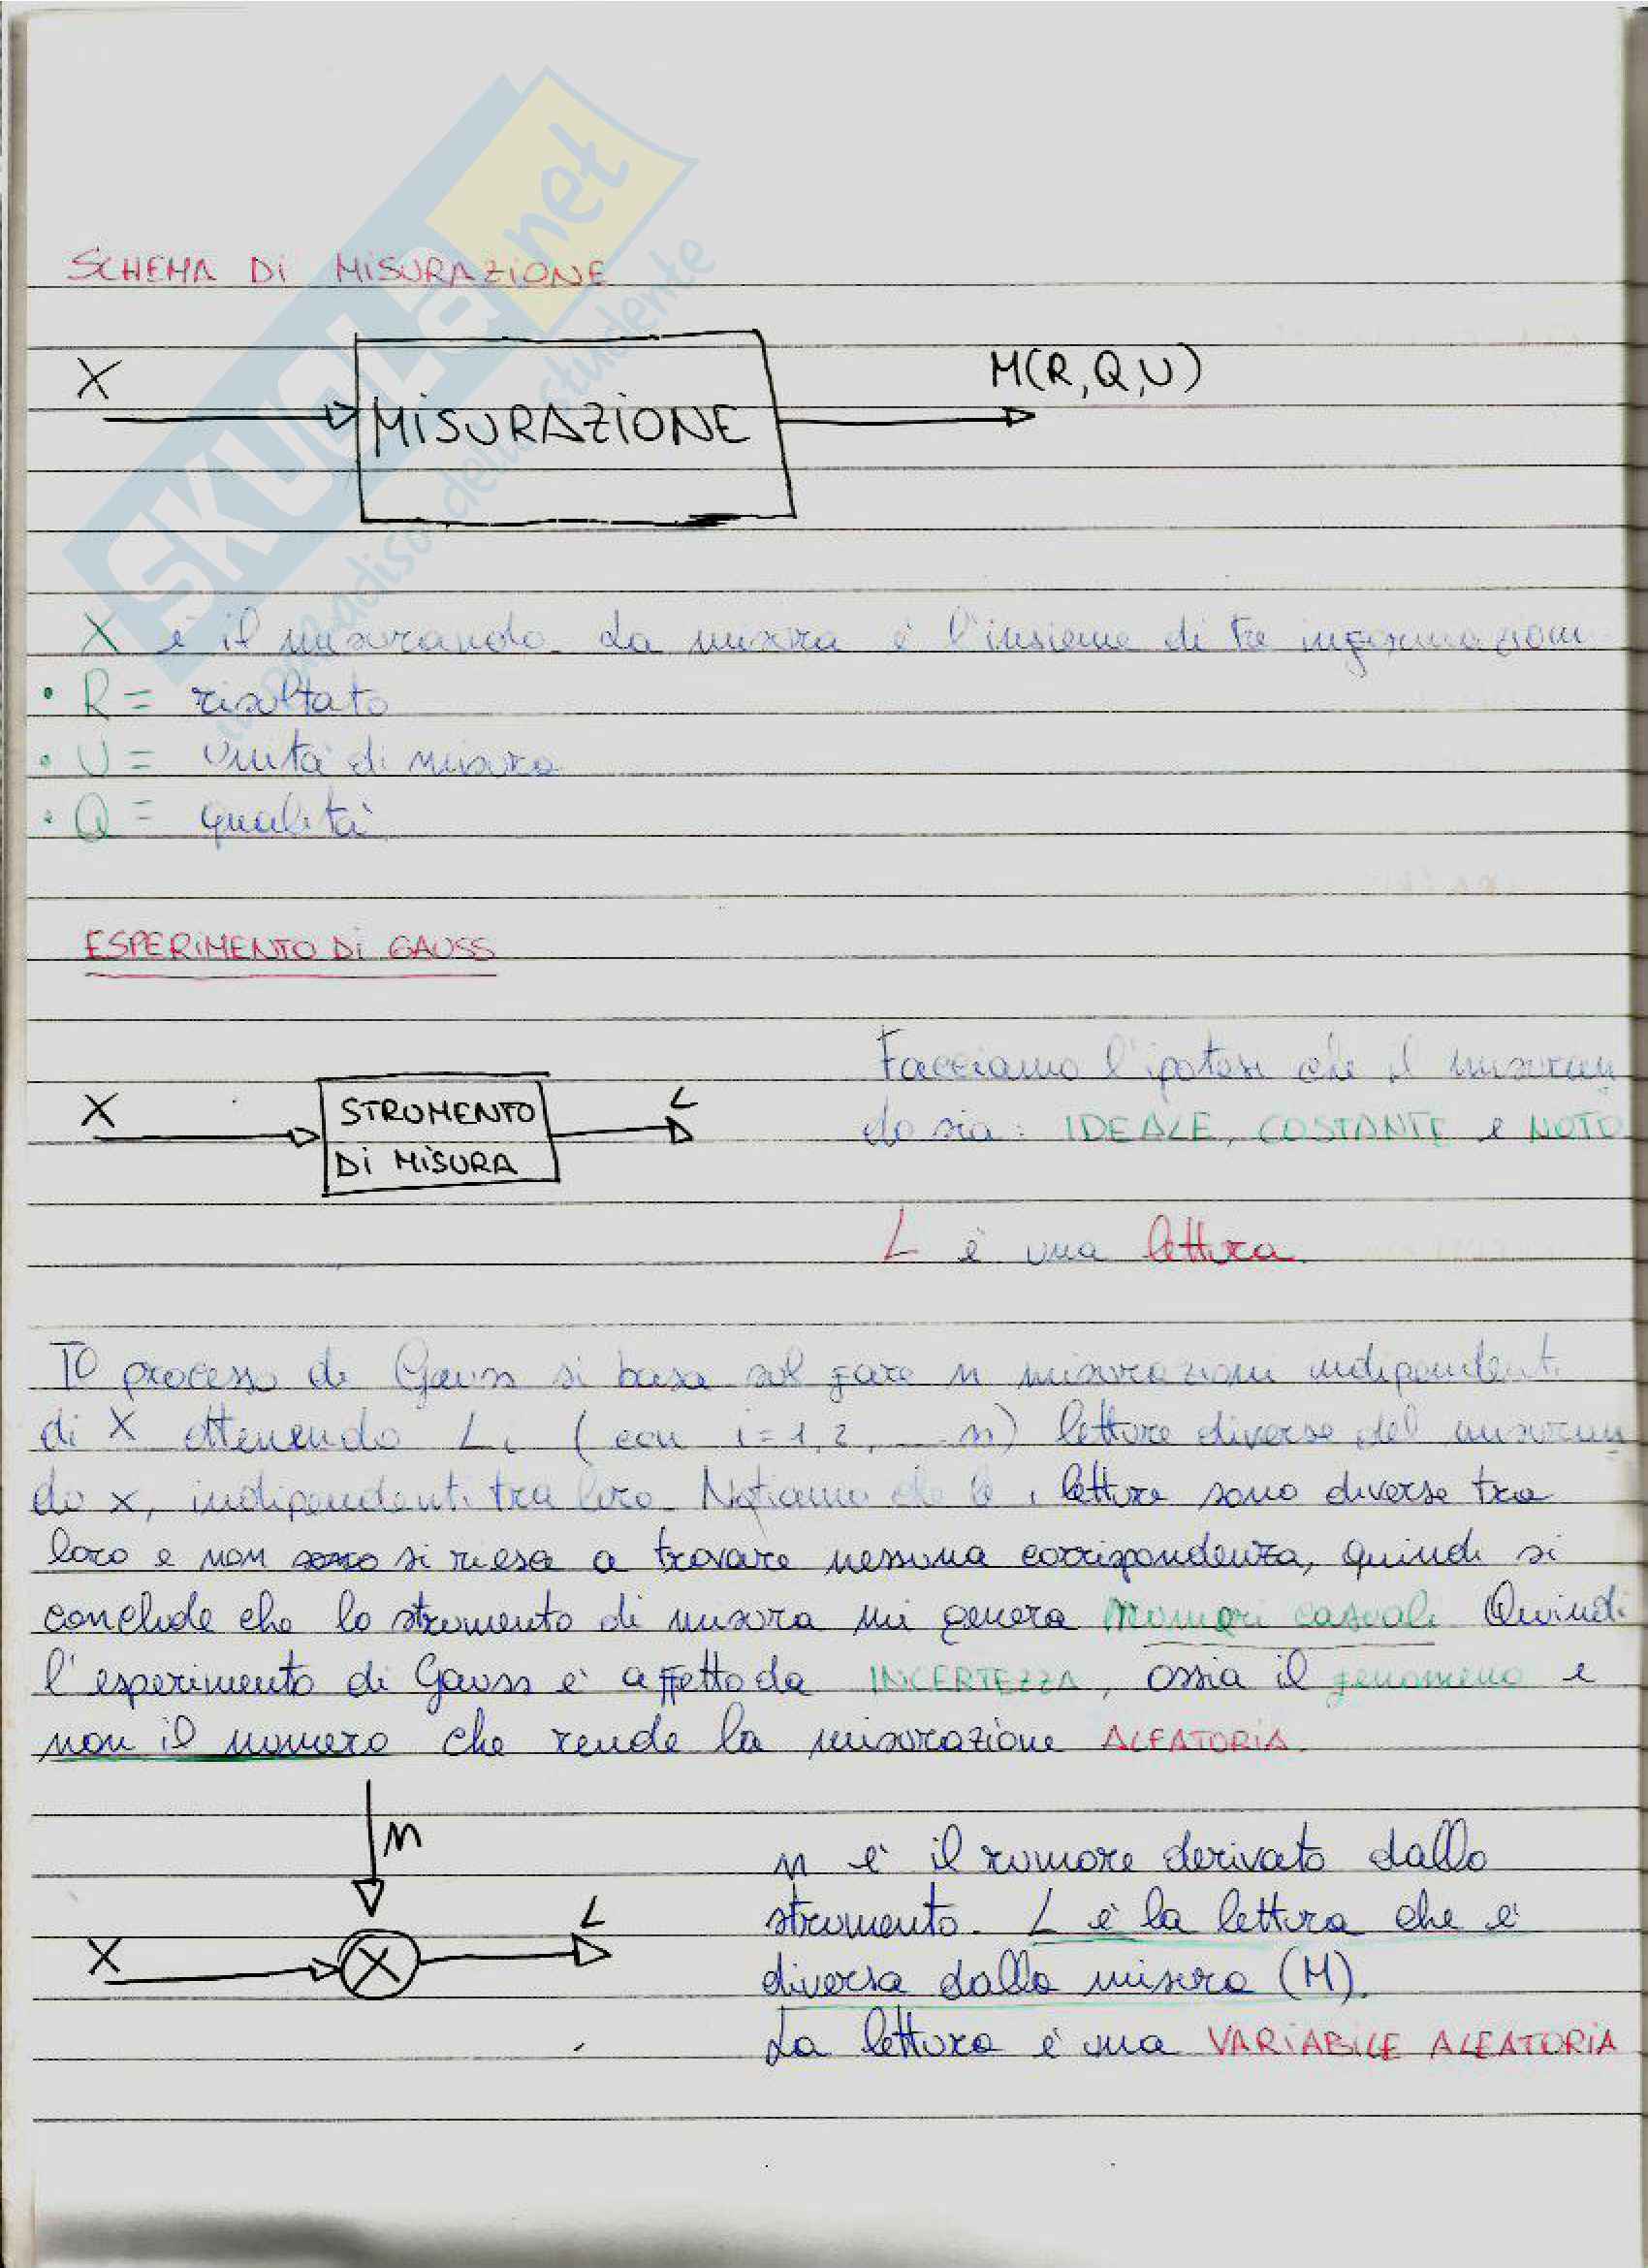 SKUOLA.net
il paradiso dello studente
SCHEMA Di MiSURAZiONE
X
MiSURAZiONE
M(R,Q,U)
X è il misurando. La misura è l'insieme di tre informazioni
• R = risultato
• U = Unità di misura
• Q = qualità
ESPERiMENTO Di GAUSS
X
STRUMENTO
Di MiSURA
L
Facciamo l'ipotesi che il misuran
do sia: IDEALE, COSTANTE e NOTO
L è una lettura.
Il processo di Gauss si basa sul fare n misurazioni indipendenti
di X ottenendo Li (con i=1,2,...n) letture diverse del misuran
do x, indipendenti tra loro. Notiamo che le letture sono diverse tra
loro e non si riesce a trovare nessuna corrispondenza, quindi si
conclude che lo strumento di misura mi genera numeri casuali Quindi
l'esperimento di Gauss è affetto da INCERTEZZA, ossia il fenomeno e
non il numero che rende la misurazione ALEATORIA.
n
X
X
L
n è il rumore derivato dallo
strumento. L è la lettura che è
diversa dalla misura (M).
La lettura è una VARiABiLE ALEATORiA